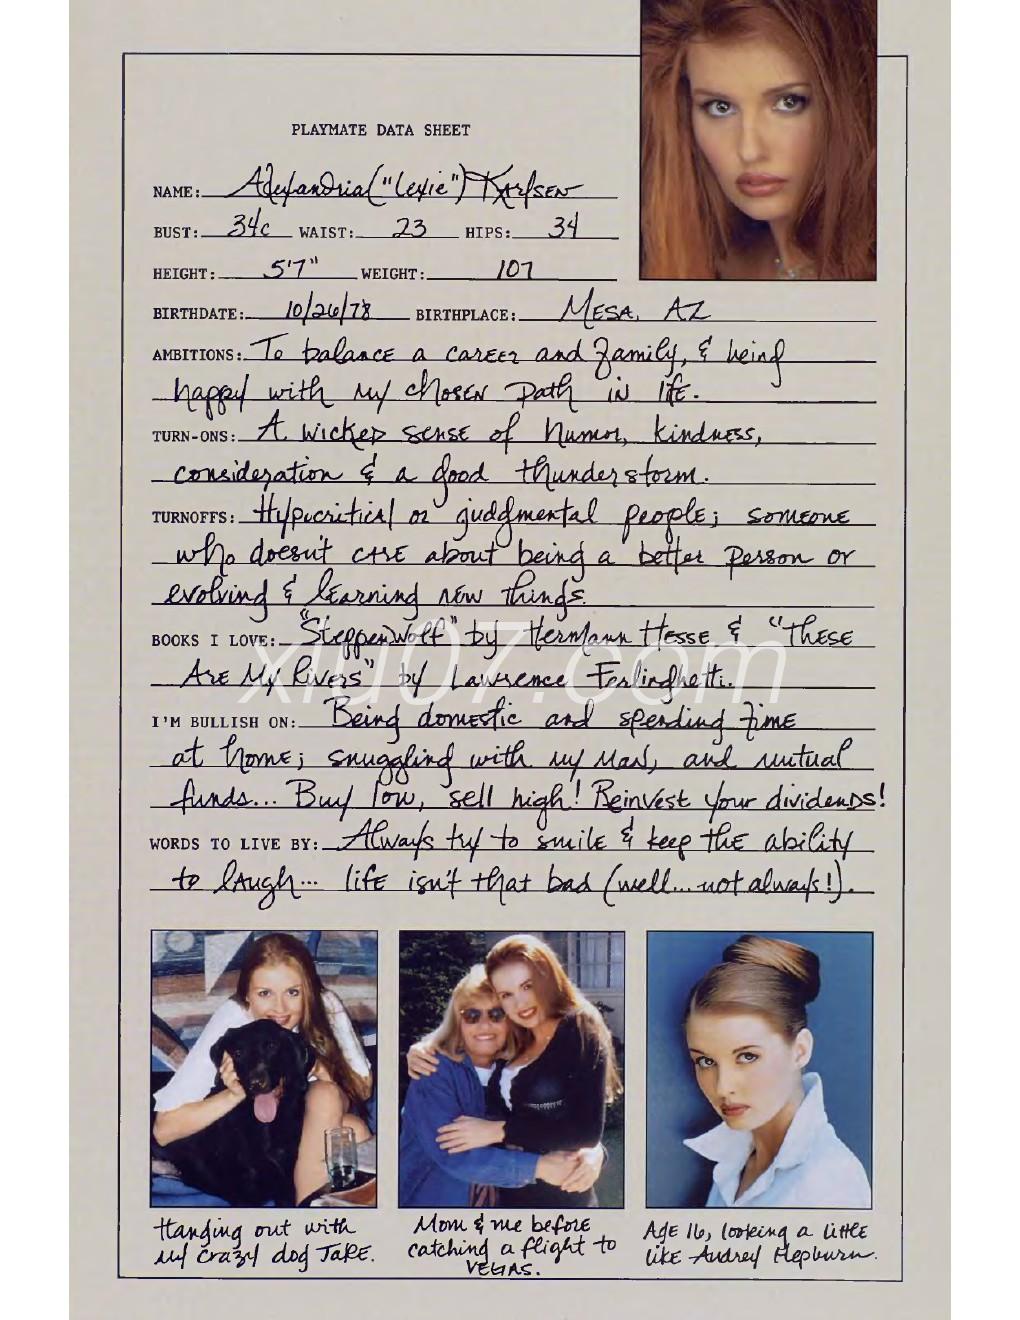 PLAYMATE DATA SHEET
NAME: Alexandria ("Lexie") Karlsen
BUST: 34C WAIST: 23 HIPS: 34
HEIGHT: 5'7" WEIGHT: 107
BIRTHDATE: 10/26/78 BIRTHPLACE: MESA, AZ
AMBITIONS: To balance a career and family, & being
happy with my chosen path in life.
TURN-ONS: A wicked sense of humor, kindness,
consideration & a good thunderstorm.
TURNOFFS: Hypocritical or judgmental people; someone
who doesn't care about being a better person or
evolving & learning new things.
BOOKS I LOVE: "Steppenwolf" by Hermann Hesse & "These
xiu07.com
Are My Rivers" by Lawrence Ferlinghetti.
I'M BULLISH ON: Being domestic and spending time
at home; snuggling with my man, and mutual
funds... Buy low, sell high! Reinvest your dividends!
WORDS TO LIVE BY: Always try to smile & keep the ability
to laugh... life isn't that bad (well... not always!).
Hanging out with
my crazy dog Jake.
Mom & me before
catching a flight to
VEGAS.
Age 16, looking a little
like Audrey Hepburn.